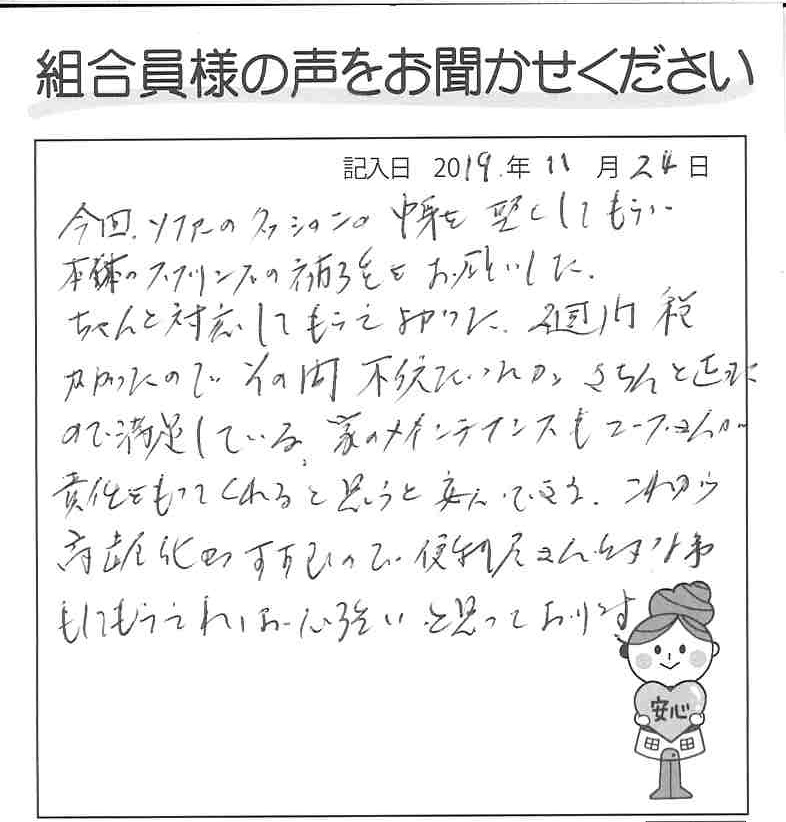 組合員様の声をお聞かせください
記入日 2019年11月24日
今回、ソファーのクッションの中身を堅くしてもらい
本体のスプリングの補強をお願いした。
ちゃんと対応してもらえてよかった。2週間程
かかったので その間 不便だったが きちんと直った
ので満足している。家のメインテナンスもコープさんが
責任をもってくれると思うと安心できる。これから
高齢化もすすむので 便利屋さん的な事
もしてもらえれば 心強いと思っております
安心